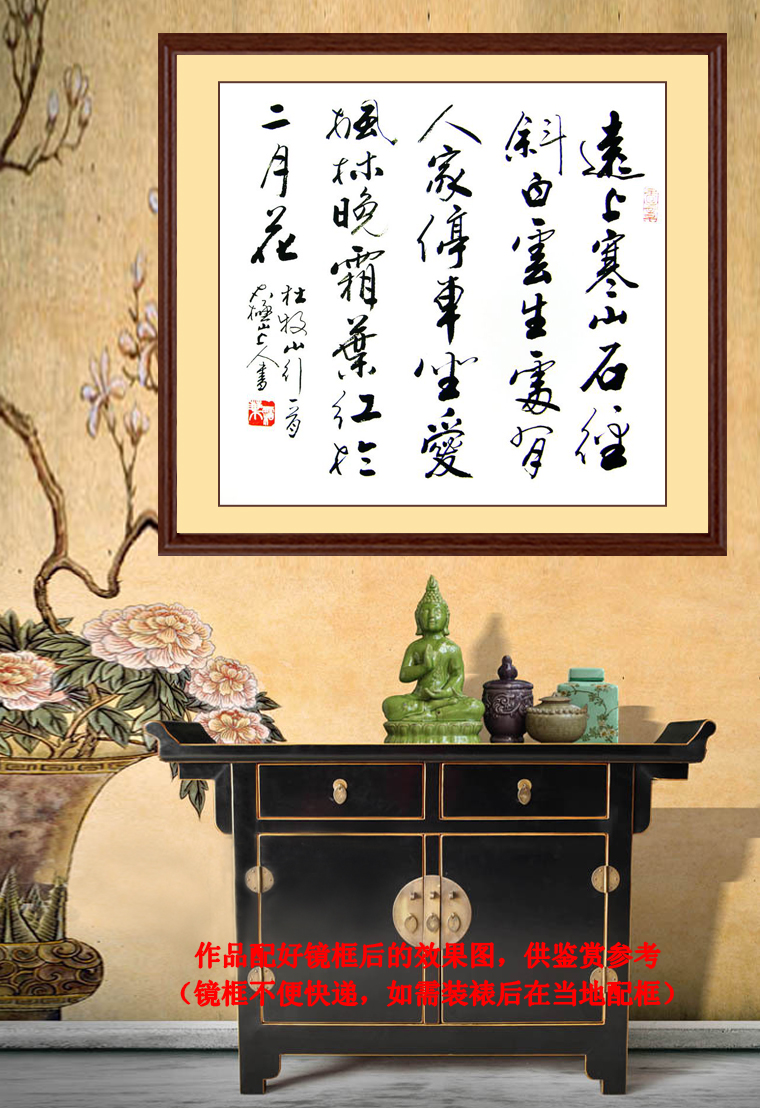 遠上寒山石徑
斜白雲生處有
人家停車坐愛
楓林晚霜葉紅於
二月花
杜牧山行一首
太極山上人書
作品配好镜框后的效果图，供鉴赏参考
（镜框不便快递，如需装裱后在当地配框）